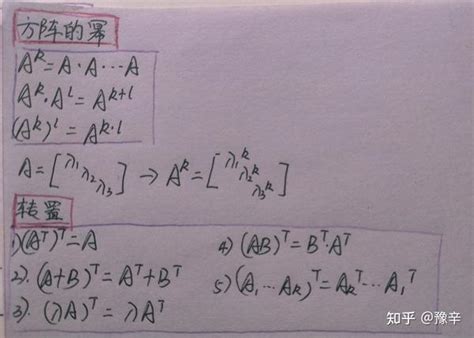 方阵的幂
A^k = A·A···A
A^k·A^l = A^{k+l}
(A^k)^l = A^{k·l}
A = [λ₁ λ₂ λ₃] → A^k = [λ₁^k λ₂^k λ₃^k]
转置
1) (A^T)^T = A
4) (AB)^T = B^T·A^T
2). (A+B)^T = A^T + B^T
5) (A₁ ··· A_k)^T = A_k^T ··· A₁^T
3). (λA)^T = λA^T
知乎 @豫辛